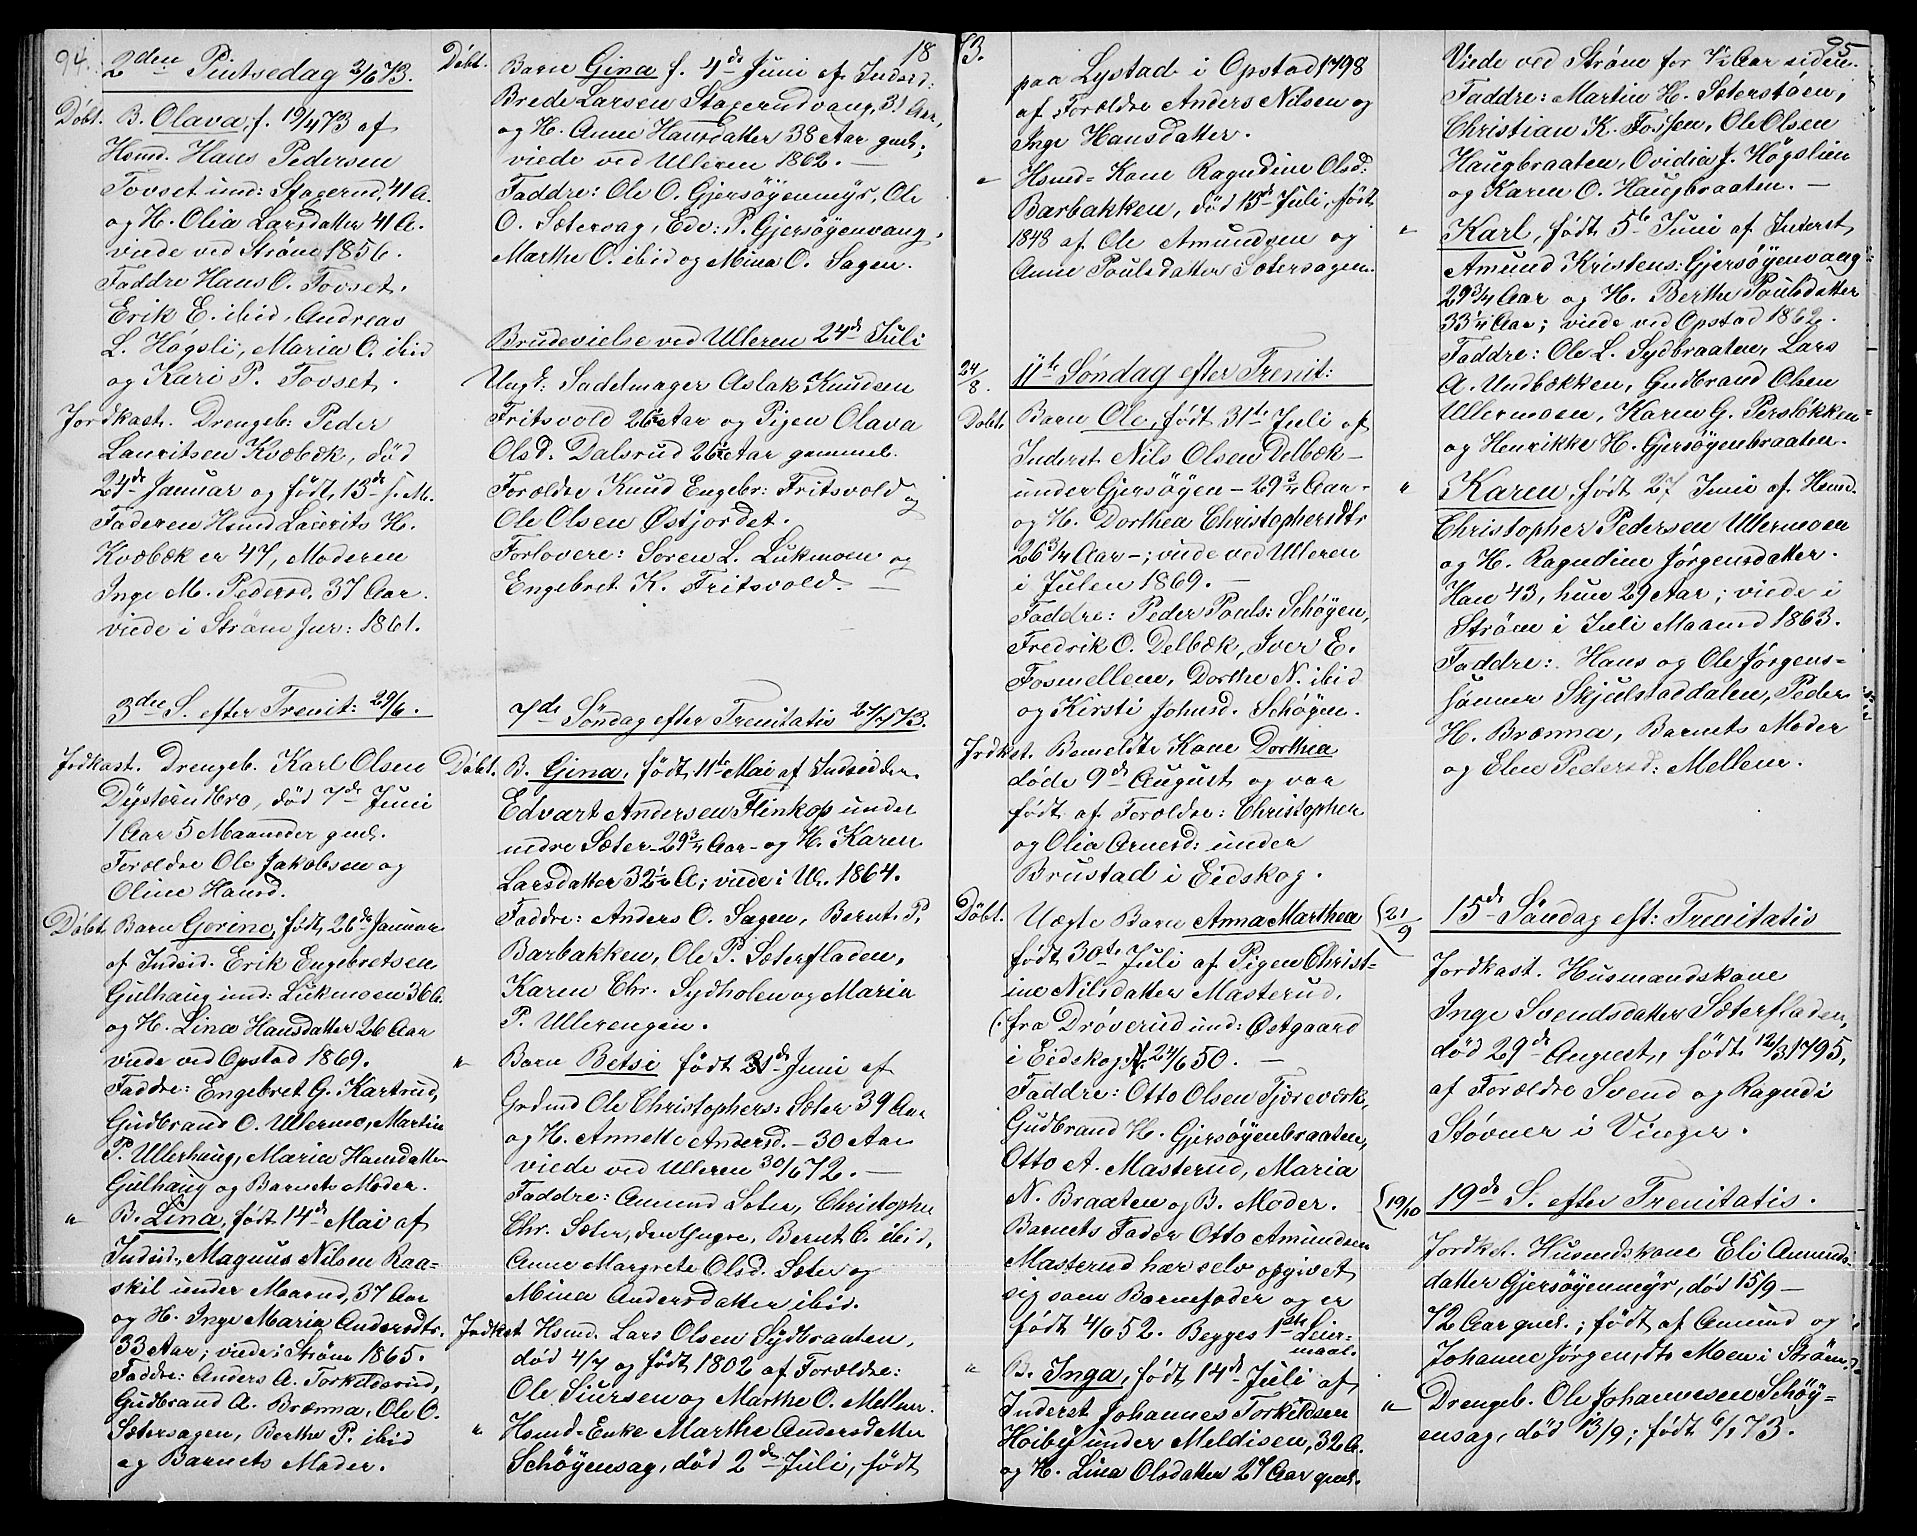 94.
2den Pintsedag 2/6 73.
Döbt. B. Olava, f. 19/4 73 af
Hsmd. Hans Pedersen
Tovset und: Stagerud, 41 A.
og H. Olia Larsdatter 41 A.
viede ved Ström 1856.
Faddre Hans O. Tovset.
Erik E. ibid, Andreas
L. Högsli, Maria O. ibid
og Kari P. Tovset.
Jordkast. Drengeb: Peder
Lauritsen Kvæbæk, död
24de Januar og født 13de s. M.
Faderen Hsmd Laurits H.
Kvæbæk er 47, Moderen
Inge M. Pedersd. 37 Aar.
viede i Ström Jur: 1861.
3die S. efter Trenit: 29/6.
Jrdkast. Drengeb. Karl Olsen
död 7de Juni
1 Aar 5 Maaneder gml.
Forældre Ole Jakobsen og
Oline Hansd.
Döbt. Barn Gorine, født 26de Januar
af Indsid. Erik Engebretsen
Gulhaug und: Lukmoen 36 A.
og H. Lina Hansdatter 26 Aar
viede ved Opstad 1869.
Faddre: Engebret G. Kartrud,
Gudbrand O. Ullermo, Martin
P. Ullerhaug, Maria Hansdatter
Gulhaug og Barnets Moder.
" B. Lina, født 14de Mai af
Indsid. Magnus Nilsen Raa-
skil under Maarud, 37 Aar
og H. Inge Maria Andersdtr.
33 Aar; viede i Ström 1865.
Faddre: Anders A. Torkildsrud,
Gudbrand A. Brænna, Ole O.
Sætersagen, Berthe P. ibid
og Barnets Moder.
18
Döbt. Barn Gina f. 4de Juni af Inderst:
Brede Larsen Stagerudvang, 31 Aar,
og H. Anne Hansdatter 38 Aar gml;
viede ved Ulleren 1862. —
Faddre: Ole O. Gjersöyenmyr, Ole
O. Sætersag, Edv: P. Gjersöyenvang,
Marthe O. ibid og Mina O. Sagen.
Brudevielse ved Ulleren 24de Juli
Ungk: Sadelmager Aslak Knudsen
Fritsvold 26½ Aar og Pigen Olava
Olsd. Dalsrud 26½ Aar gammel.
Forældre Knud Engebr: Fritsvold og
Ole Olsen Østjordet.
Forlovere: Soren L. Lukmoen og
Engebret K. Fritsvold. —
7de Söndag efter Trenitatis 27/7 73.
Döbt. B. Gina, født 11te Mai af Indsidder
Edvart Andersen Flinkop under
nedre Sæter - 29 3/4 Aar - og H. Karen
Larsdatter 32½ A; viede i U. 1864.
Faddre: Anders O. Sagen, Bernt P.
Barbakken, Ole P. Sæterfladen,
Karen Chr. Sydholen og Maria
P. Ullerengen.
" Barn Betsi født 21de Juni af
Grdmd Ole Christophers: Sæter 39 Aar
og H. Annette Andersd. - 30 Aar
viede ved Ulleren 30/6 72. —
Faddre: Amund Sæter, Christopher
Chr. Sæter, den Yngre, Bernt C. ibid,
Anne Margrete Olsd. Sæter og
Mina Andersdatter ibid.
Jrdkst Hsmd. Lars Olsen Sydbraaten,
död 4/7 og født 1802 af Forældre:
Ole Siursen og Marthe O. Mellem.
" Hsmd-Enke Marthe Andersdatter
Schöyensag, död 2den Juli, født
73.
paa Lystad i Opstad 1798
af Forældre Anders Nilsen og
Inge Hansdatter.
" Hsmd-Kone Ragndine Olsd:
Barbakken, död 15de Juli, født
1848 af Ole Amundsen og
Anne Poulsdatter Sætersagen.
24/8. 11te Söndag efter Trenit:
Döbt. Barn Ole, født 31te Juli af
Inderst Nils Olsen Delbæk -
under Gjersöyen - 29 3/4 Aar -
og H. Dorthea Christophersdtr
26 3/4 Aar -; viede ved Ulleren
i Julen 1869. —
Faddre: Peder Pouls: Schöyen,
Fredrik O. Delbæk, Iver E.
Fosmellem, Dorthe N. ibid
og Kirsti Johnsd. Schöyen.
Jrdkst. Bemeldte Kone Dorthea
döde 9de August og var
født af Forældre: Christopher
og Olia Arnesd: under
Brustad i Eidskog.
Döbt. Uægte Barn Anna Marthea
født 30te Juli af Pigen Christ-
ine Nilsdatter Masterud.
(: fra Dröverud und: Østgaard
i Eidskog f. 24/6 50. —
Faddre: Otto Olsen Tjæreverk,
Gudbrand H. Gjersöyenbraaten,
Otto A. Masterud, Maria
N. Braaten og B. Moder.
Barnets Fader Otto Amundsen
Masterud har selv opgivet
sig som Barnefader og er
født 4/6 52. Begges 1ste Leier-
maal.
" B. Inga, født 14de Juli af
Inderst Johannes Torkildsen
Höiby under Meldisen, 32 A.
og H. Lina Olsdatter 27 Aar gml.
95
Viede ved Ström for 7½ Aar siden.
Faddre: Martin H. Sæterstöen,
Christian K. Fossen, Ole Olsen
Haugbraaten, Ovidia J. Högslien
og Karen O. Haugbraaten. —
" Karl, født 5te Juni af Inderst
Amund Kristens: Gjersöyenvang
29 3/4 Aar og H. Berthe Poulsdatter
33 1/4 Aar; viede ved Opstad 1862.
Faddre: Ole L. Sydbraaten, Lars
A. Undbækken, Gudbrand Olsen
Ullermoen, Karen G. Persløkken
og Henrikke H. Gjersöyenbraaten.
" Karen, født 27 Juni af Hsmd.
Christopher Pedersen Ullermoen
og H. Ragndine Jörgensdatter.
Han 43, hun 29 Aar; viede i
Ström i Juli Maaned 1863.
Faddre: Hans og Ole Jörgens-
sönner Skjulstaddalen, Peder
H. Brænna, Barnets Moder
og Elen Pedersd: Mellem.
21/9 15de Söndag eft: Trenitatis
Jordkast. Husmandskone
Inge Svendsdatter Sæterfladen,
död 29de August, født 12/3 1795,
af Forældre Svend og Ragndi
Stövner i Vinger.
19/10 19de S. efter Trenitatis.
Jordkst. Husmdskone Eli Amunds-
datter Gjersöyenmyr, död 15/9 -
72 Aar gml.; født af Amund og
Johanne Jörgensdtr Moen i Ström.
" Drengeb. Ole Johannesen Schöy-
ensag, död 13/9; født 6/1 73.